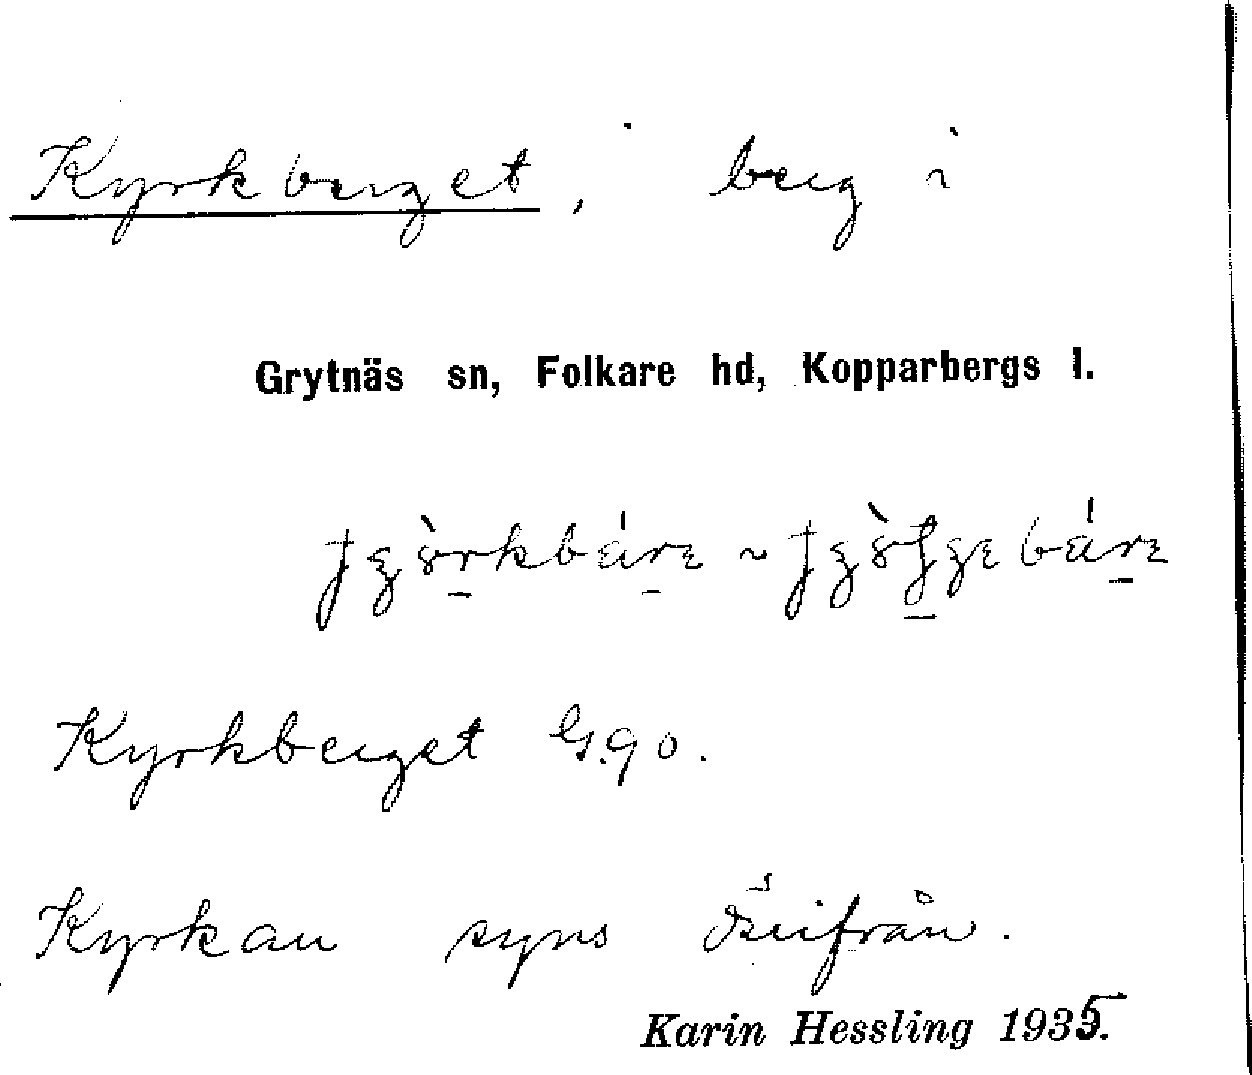 Kyrkberget, berg i
Grytnäs sn, Folkare hd, Kopparbergs l.
Kyrkberget G.90.
Kyrkan syns
Karin Hessling 1935.